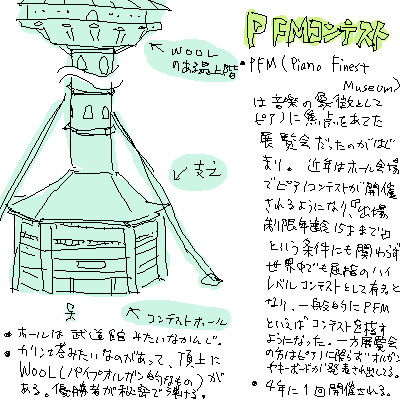 PFMコンテスト
WOOL
のある最上階
•PFM(Piano Finest
Museum)
は音楽の象徴として
ピアノに焦点をあてた
展覧会だったのがはじ
まり。近年はホール会場
でピアノコンテストが開催
されるようになり、『出場
制限年齢15才まで』
という条件にも関わらず
世界中でも屈指のハイ
レベルコンテストとして有名と
なり、一般的にPFM
といえばコンテストを指す
ようになった。一方展覧会
の方はピアノに限らずオルガン
やキーボードが発表され出してる。
•4年に1回開催される。
支え
コンテストホール
•ホールは武道館みたいなかんじ。
•かりん塔みたいなのがあって、頂上に
WOOL(パイプオルガン的なもの)が
ある。優勝者が秘密で弾ける。